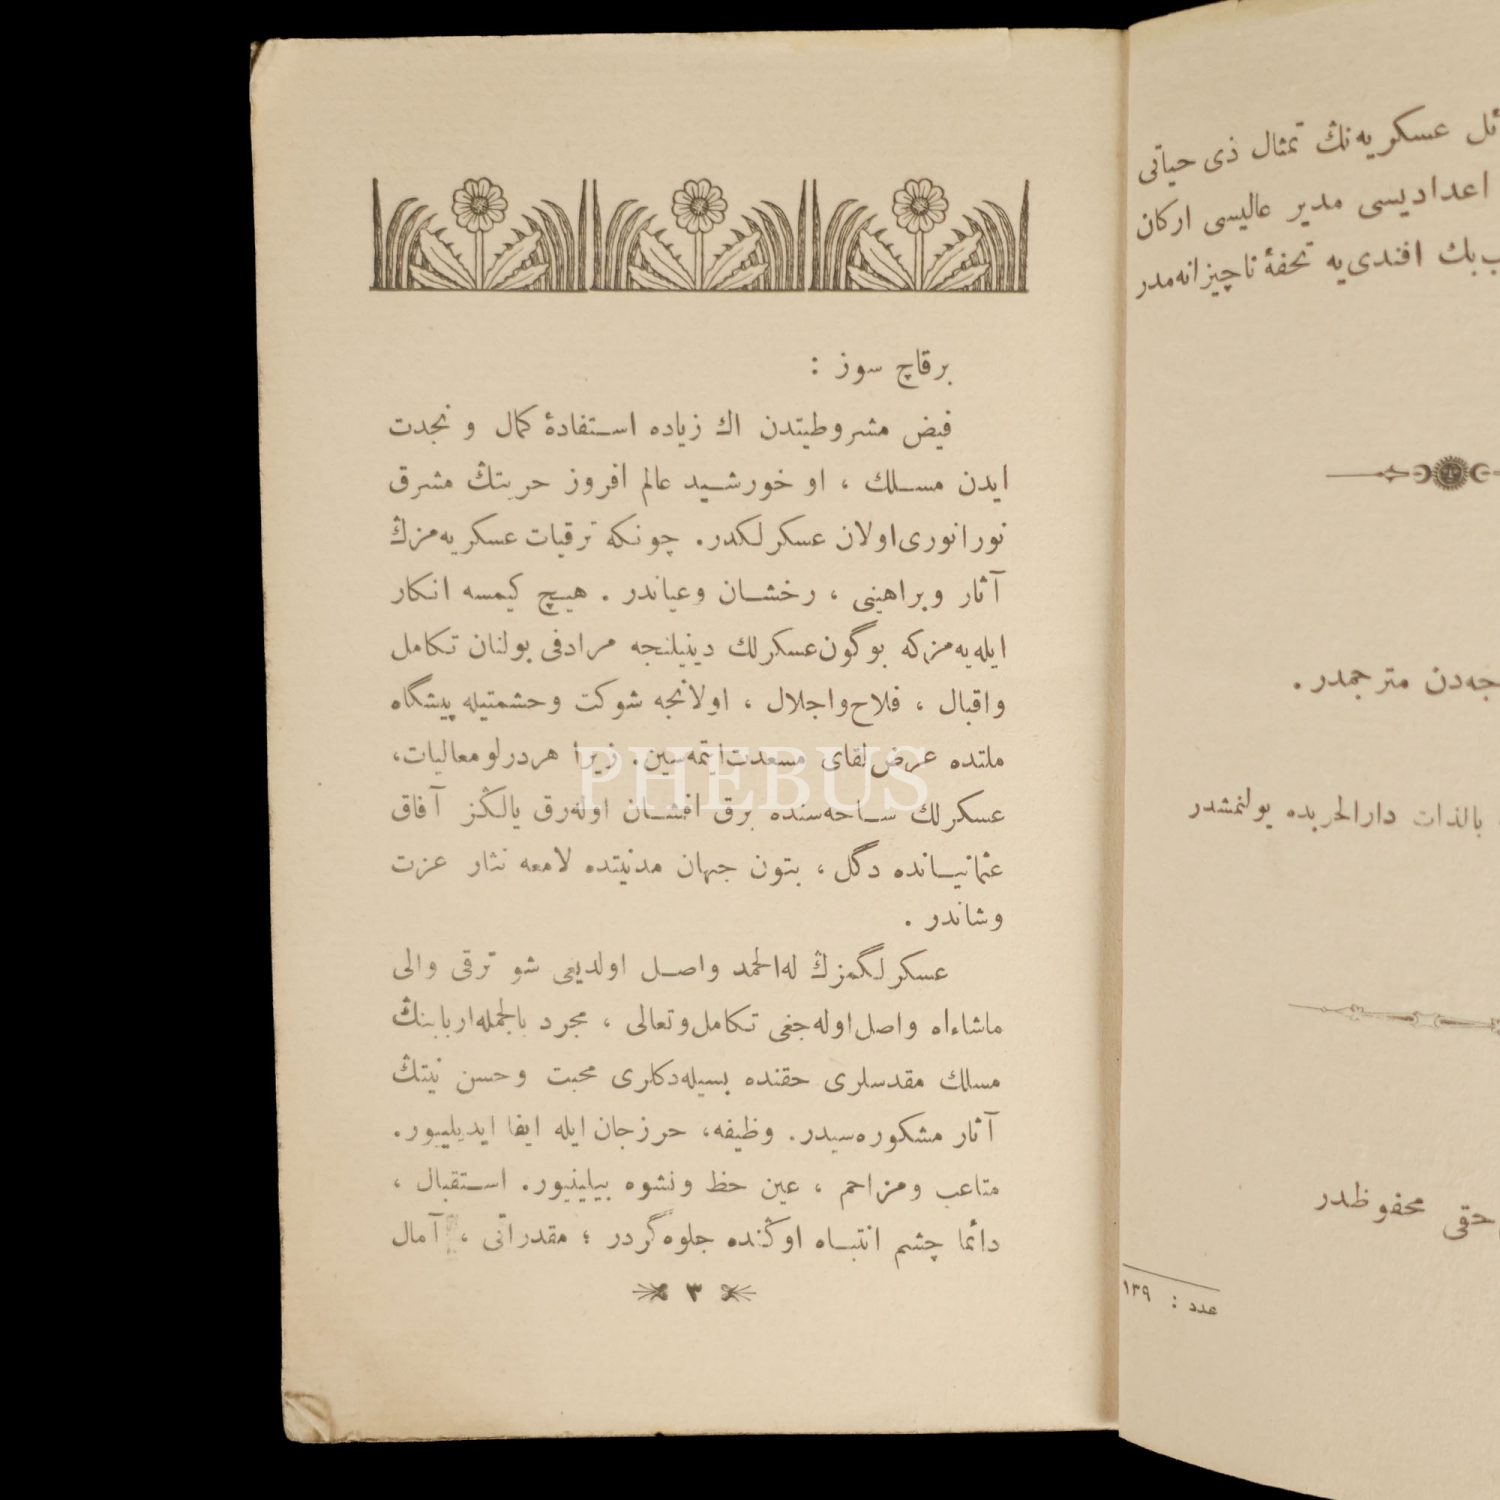 ئل عسكریه‌نڭ تمثال ذی حیاتی
اعدادیسی مدیر عالیسی اركان
بك افندی‌یه تحفهٔ ناچیزانه‌مدر
جه‌دن مترجمدر.
بالذات دارالحربده بولنمشدر
حقی محفوظدر
عدد : ١٣٩
برقاچ سوز :
فیض مشروطیتدن اك زیاده استفادهٔ كمال و نجدت
ایدن مسلك ، او خورشید عالم افروز حریتڭ مشرق
نورانوری‌اولان عسكرلكدر. چونكه ترقیات عسكریه‌مزڭ
آثار وبراهینی ، رخشان وعیاندر . هیچ كیمسه انكار
ایله‌یه‌مزكه بوگون‌عسكرلك دینیلنجه مرادفی بولنان تكامل
واقبال ، فلاح‌واجلال ، اولانجه شوكت وحشمتیله پیشگاه
ملتده عرض‌لقای مسعدت‌ایتمه‌سین. زیرا هردرلومعالیات،
عسكرلك ساحه‌سنده برق افشان اوله‌رق یالڭز آفاق
عثمانیانده دگل ، بتون جهان مدنیتده لامعه نثار عزت
وشاندر .
عسكرلگمزڭ له‌الحمد واصل اولدیغی شو ترقی والی
ماشاءاه واصل‌اوله‌جغی تكامل‌وتعالی ، مجرد بالجمله‌اربابنڭ
مسلك مقدسلری حقنده بسیله‌دكلری محبت وحسن نیتڭ
آثار مشكوره‌سیدر. وظیفه، حرزجان ایله ایفا ایدیلییور.
متاعب ومزاحم ، عین حظ ونشوه بیلینیور. استقبال ،
دائما چشم انتباه اوڭنده جلوه‌گردر ؛ مقدراتی ، آمال
٣
PHEBUS